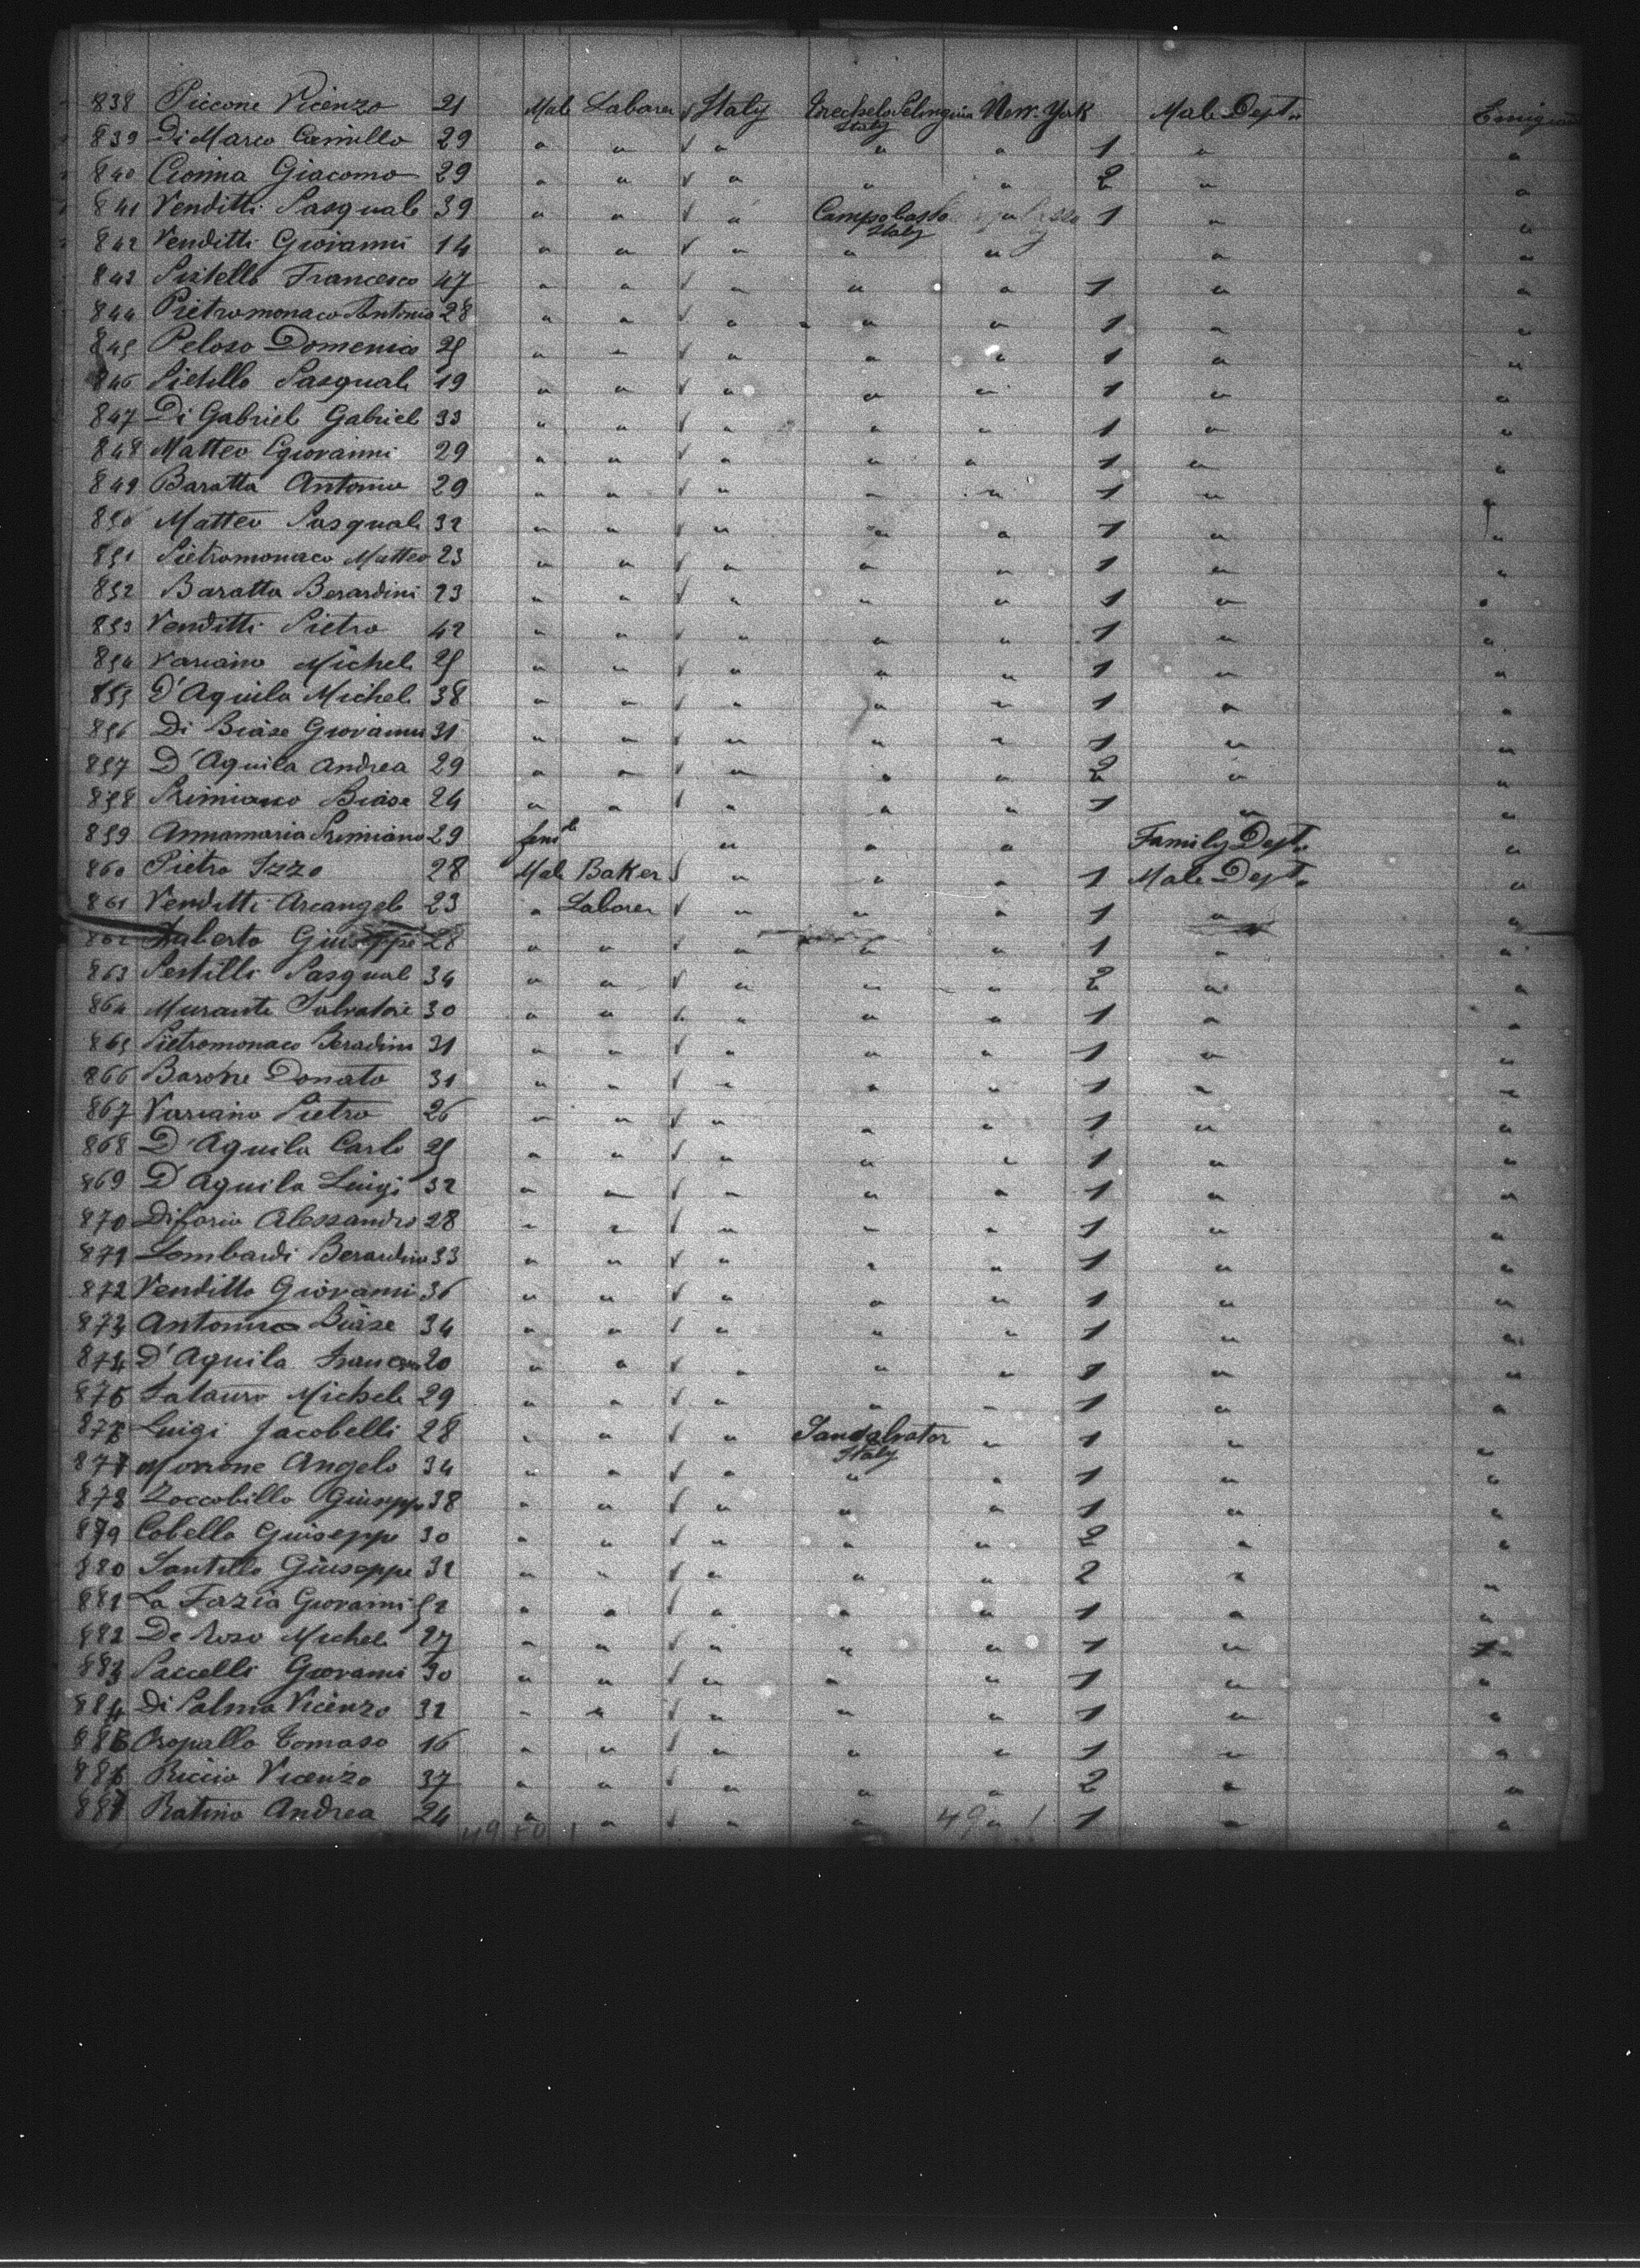 838 Piccone Vicenzo 21 Male Laborer √ Italy New-York Male Dept.
Italy
839 Di Marco Camillo 29 " " √ " " " 1 " "
840 Cionna Giacomo 29 " " √ " " " 2 " "
841 Venditti Pasquale 39 " " √ " Campobasso 1 " "
Italy
842 Venditti Giovanni 14 " " √ " " " " "
843 Francesco 47 " " √ " " " 1 " "
844 Pietromonaco Antonio 28 " " √ " " " 1 " "
845 Peloso Domenico 25 " " √ " " " 1 " "
846 Pasquale 19 " " √ " " " 1 " "
847 Di Gabriele Gabriele 33 " " √ " " " 1 " "
848 Matteo Giovanni 29 " " √ " " " 1 " "
849 Baratta Antonio 29 " " √ " " " 1 " "
850 Matteo Pasquale 32 " " √ " " " 1 " "
851 Pietromonaco Matteo 23 " " √ " " " 1 " "
852 Baratta Berardini 23 " " √ " " " 1 " "
853 Venditti Pietro 42 " " √ " " " 1 " "
854 Variano Michele 25 " " √ " " " 1 " "
855 D'Aquila Michele 38 " " √ " " " 1 " "
856 Di Biase Giovanni 31 " " √ " " " 1 " "
857 D'Aquila Andrea 29 " " √ " " " 2 " "
858 Primiano Biase 24 " " √ " " " 1 " "
859 Annamaria Primiano 29 female " " " Family Dept. "
860 Pietro Izzo 28 Male Baker √ " " " 1 Male Dept. "
861 Venditti Arcangelo 23 " Laborer √ " " " 1 " "
862 Giuseppe 28 " " √ " " " 1 " "
863 Pestilli Pasquale 34 " " √ " " " 2 " "
864 Murante Salvatore 30 " " √ " " " 1 " "
865 Pietromonaco Beradini 31 " " √ " " " 1 " "
866 Barone Donato 31 " " √ " " " 1 " "
867 Variano Pietro 26 " " √ " " " 1 " "
868 D'Aquila Carlo 25 " " √ " " " 1 " "
869 D'Aquila Luigi 32 " " √ " " " 1 " "
870 Alessandro 28 " " √ " " " 1 " "
871 Lombardi Berardino 33 " " √ " " " 1 " "
872 Venditto Giovanni 36 " " √ " " " 1 " "
873 Biase 34 " " √ " " " 1 " "
874 D'Aquila Francesco 20 " " √ " " " 1 " "
875 Michele 29 " " √ " " " 1 " "
876 Luigi Jacobelli 28 " " √ " Sansalvator " 1 " "
Italy
877 Morrone Angelo 34 " " √ " " " 1 " "
878 Zoccobillo Giuseppe 38 " " √ " " " 1 " "
879 Cobella Guiseppe 30 " " √ " " " 2 " "
880 Santillo Giuseppe 32 " " √ " " " 2 " "
881 La Fazia Giovanni 52 " " √ " " " 1 " "
882 Michele 27 " " √ " " " 1 "
883 Paccelli Giovanni 30 " " √ " " " 1 " "
884 Di Palma Vicenzo 32 " " √ " " " 1 " "
885 Tomaso 16 " " √ " " " 1 " "
886 Riccio Vicenzo 37 " " √ " " " 2 " "
887 Ratino Andrea 24 " " √ " " " 1 " "